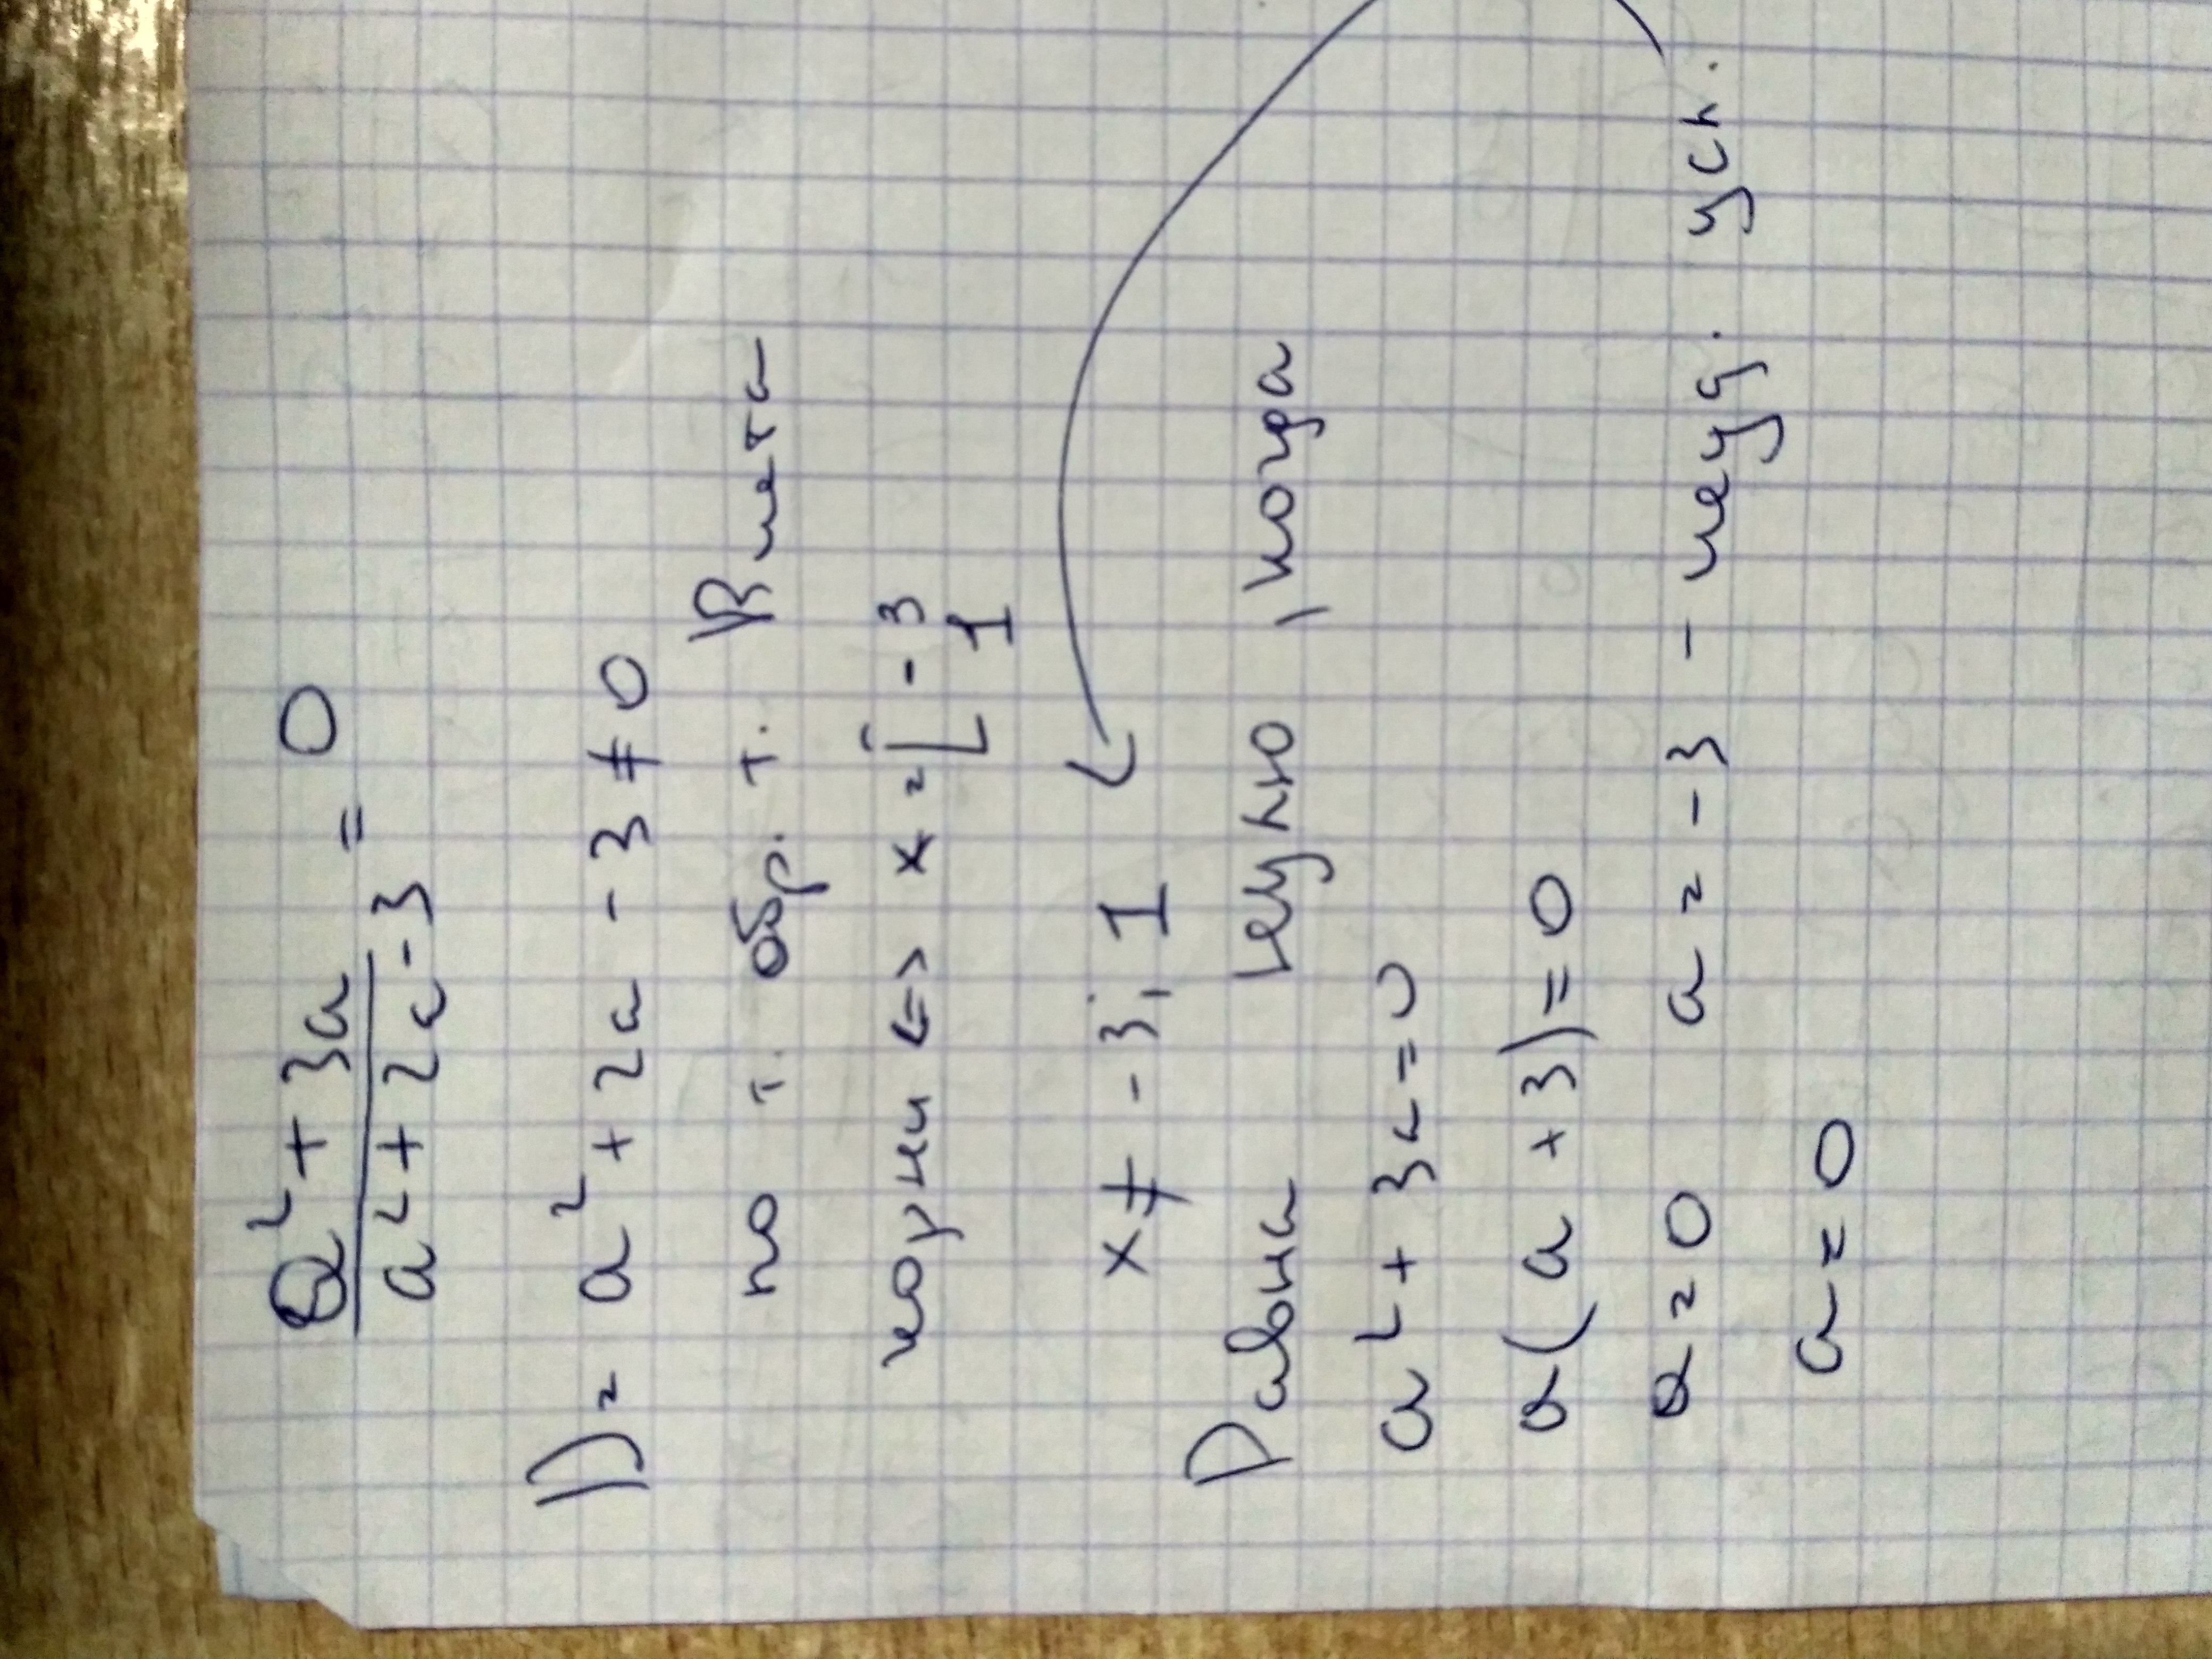 a² + 3a / a² + 2a - 3 = 0
D = a² + 2a - 3 ≠ 0
по т. обр. т. Виета
корни <=> x = [ -3 1
x ≠ -3; 1
Равна нулю, когда
a² + 3a = 0
a(a + 3) = 0
a = 0 a = -3 - не уд. усл.
a = 0